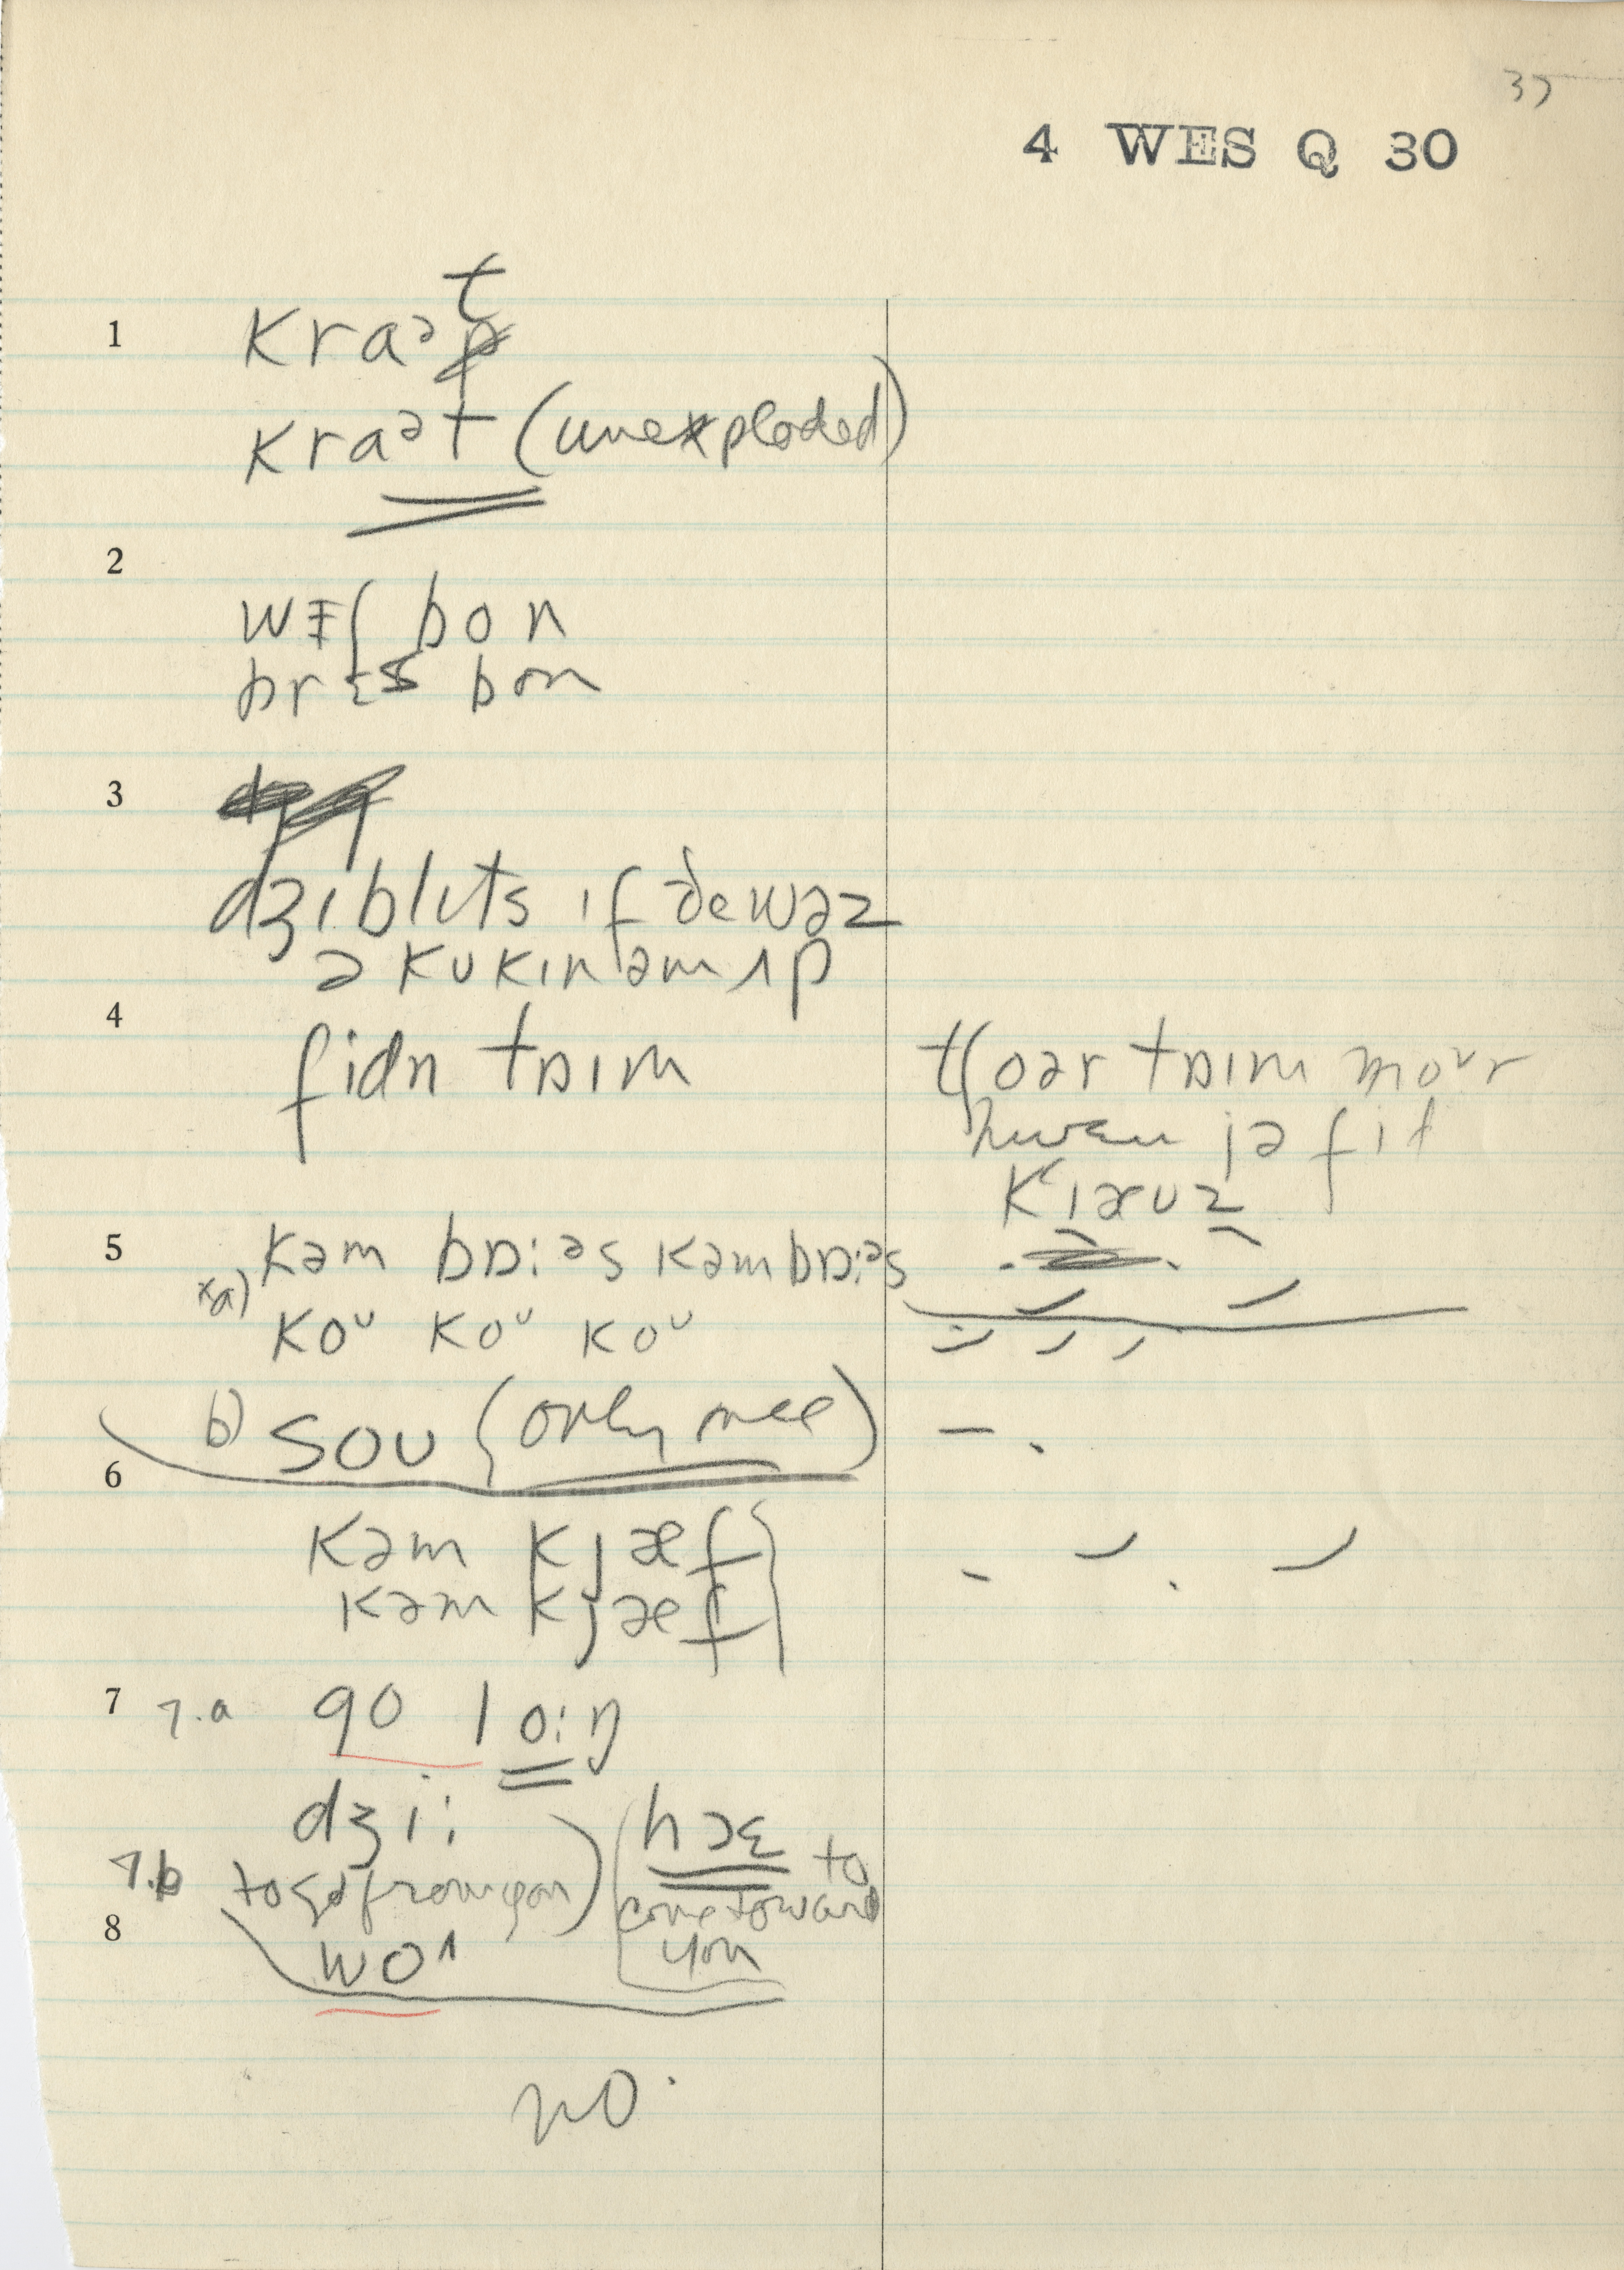 37
4 WES Q 30
1 kraᵊt
kraᵊt (unexploded)
2
wɪʃ bon
brɛs bon
3
dʒɪblɪts ɪf ðe wəz
ə kukɪn əm ʌp
4
fidn tɒɪm
tʃoər tɒɪm moᵘr
hwɛn jə fit
5 kəm bɒ:ᵊs kəm bɒ:ᵊs
a) koᵘ koᵘ koᵘ
b) sou (only nee)
6
kəm kjæf
kəm kjæf
7 7.a go lo:ŋ
dʒi: hɔɛ to
7.b to go from you) come toward
8 you
woʌ
no.